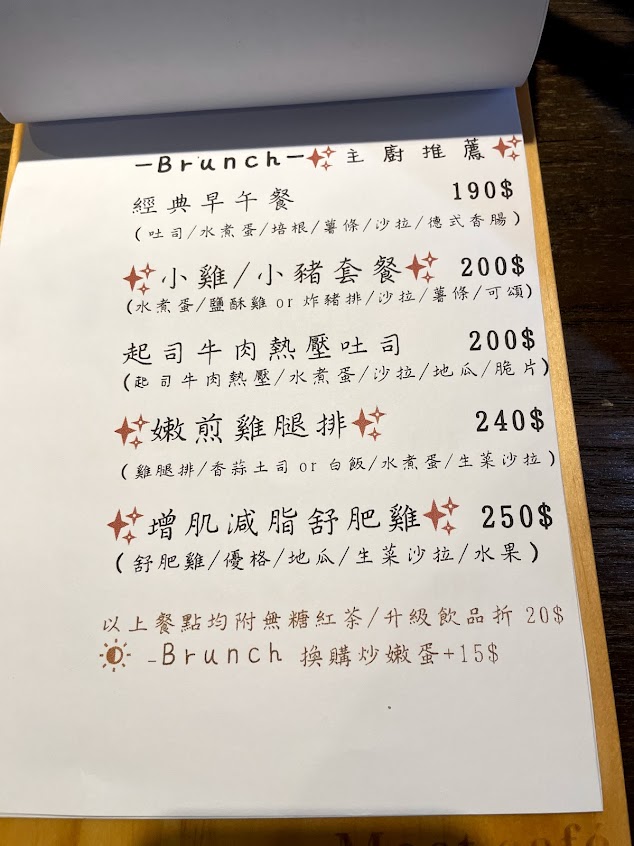 -Brunch- 主廚推薦
經典早午餐 190$
(吐司/水煮蛋/培根/薯條/沙拉/德式香腸)
小雞/小豬套餐 200$
(水煮蛋/鹽酥雞 or 炸豬排/沙拉/薯條/可頌)
起司牛肉熱壓吐司 200$
(起司牛肉熱壓/水煮蛋/沙拉/地瓜/脆片)
嫩煎雞腿排 240$
(雞腿排/香蒜土司 or 白飯/水煮蛋/生菜沙拉)
增肌減脂舒肥雞 250$
(舒肥雞/優格/地瓜/生菜沙拉/水果)
以上餐點均附無糖紅茶/升級飲品折 20$
-Brunch 換購炒嫩蛋+15$